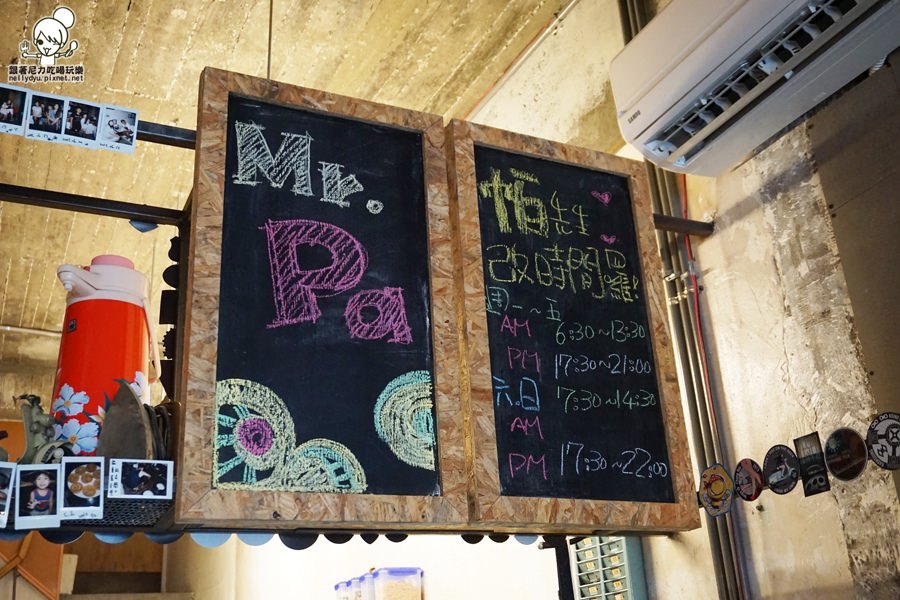 跟著尼力吃喝玩樂
nellydyu.pixnet.net
Mr.
Pa
怕先生
改時間囉!
週一~五
AM 6:30~13:30
PM 17:30~21:00
六.日 17:30~14:30
AM
PM 17:30~22:00
SANYO